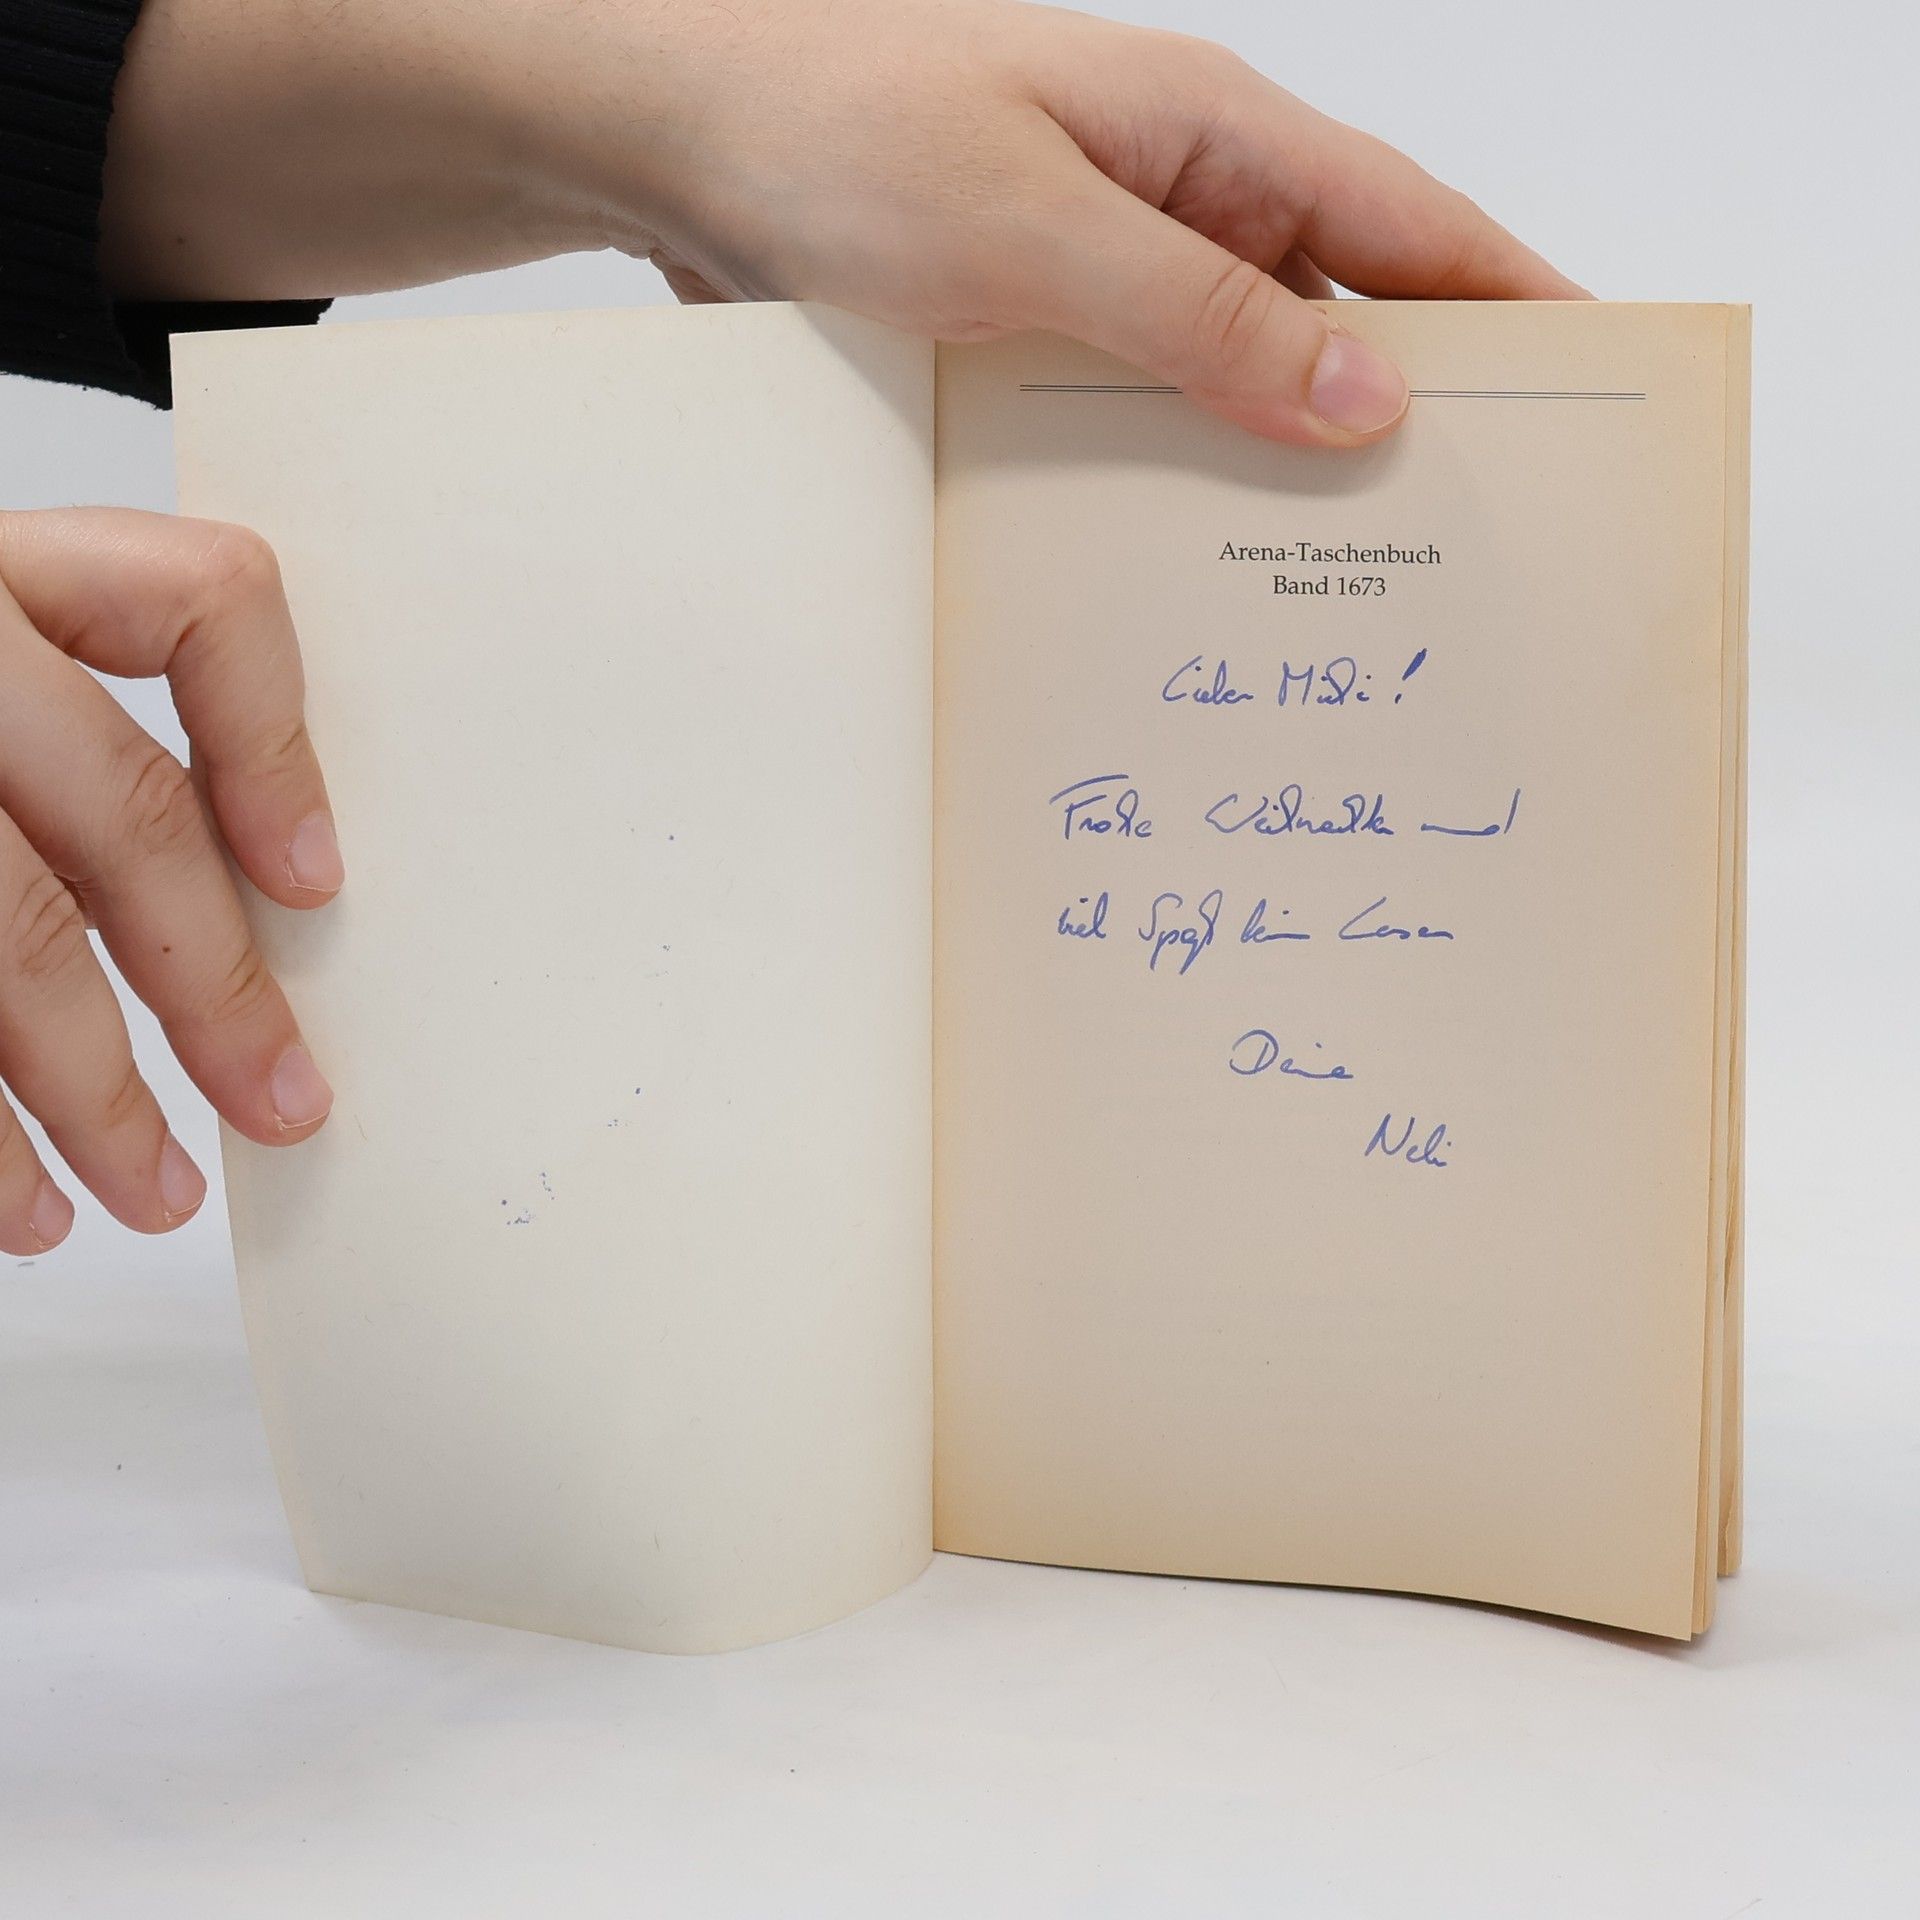 Arena-Taschenbuch
Band 1673
Lieber Michi!
Frohe Weihnachten und
viel Spaß beim Lesen
Deine